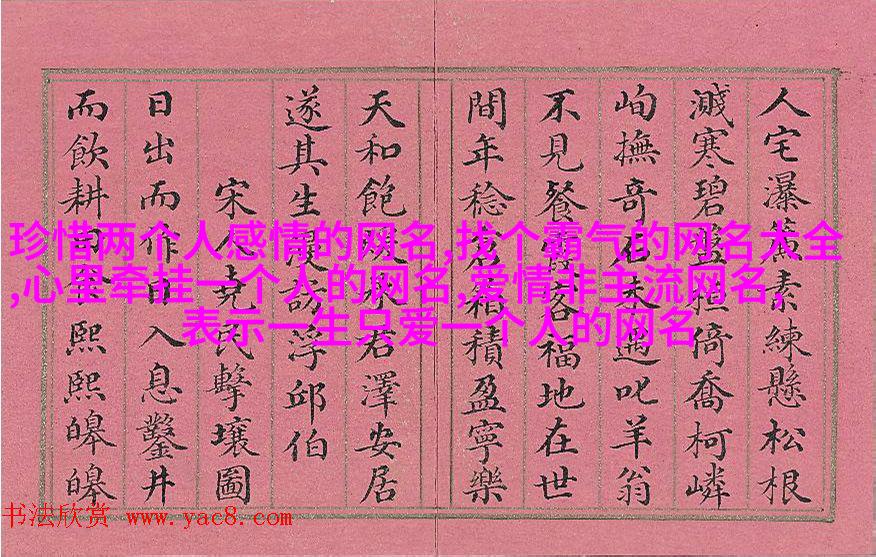 人宅瀑素練懸松根
濺寒碧盤桓倚喬柯嶙
峋撫奇石未遇叱羊翁
不見餐霞客福地在世
間年稔倉箱積盈寧樂
天和飽君澤安居
遂其生漫訪浮邱伯
宋人堯民擊壤圖
日出而作日入息鑿井
而飲耕田食熙熙皞皞
珍惜两个人感情的网名,找个霸气的网名大全
,心里牵挂一个人的网名,爱情非主流网名,
表示一生只爱一个人的网名
书法欣赏 www.yac8.com